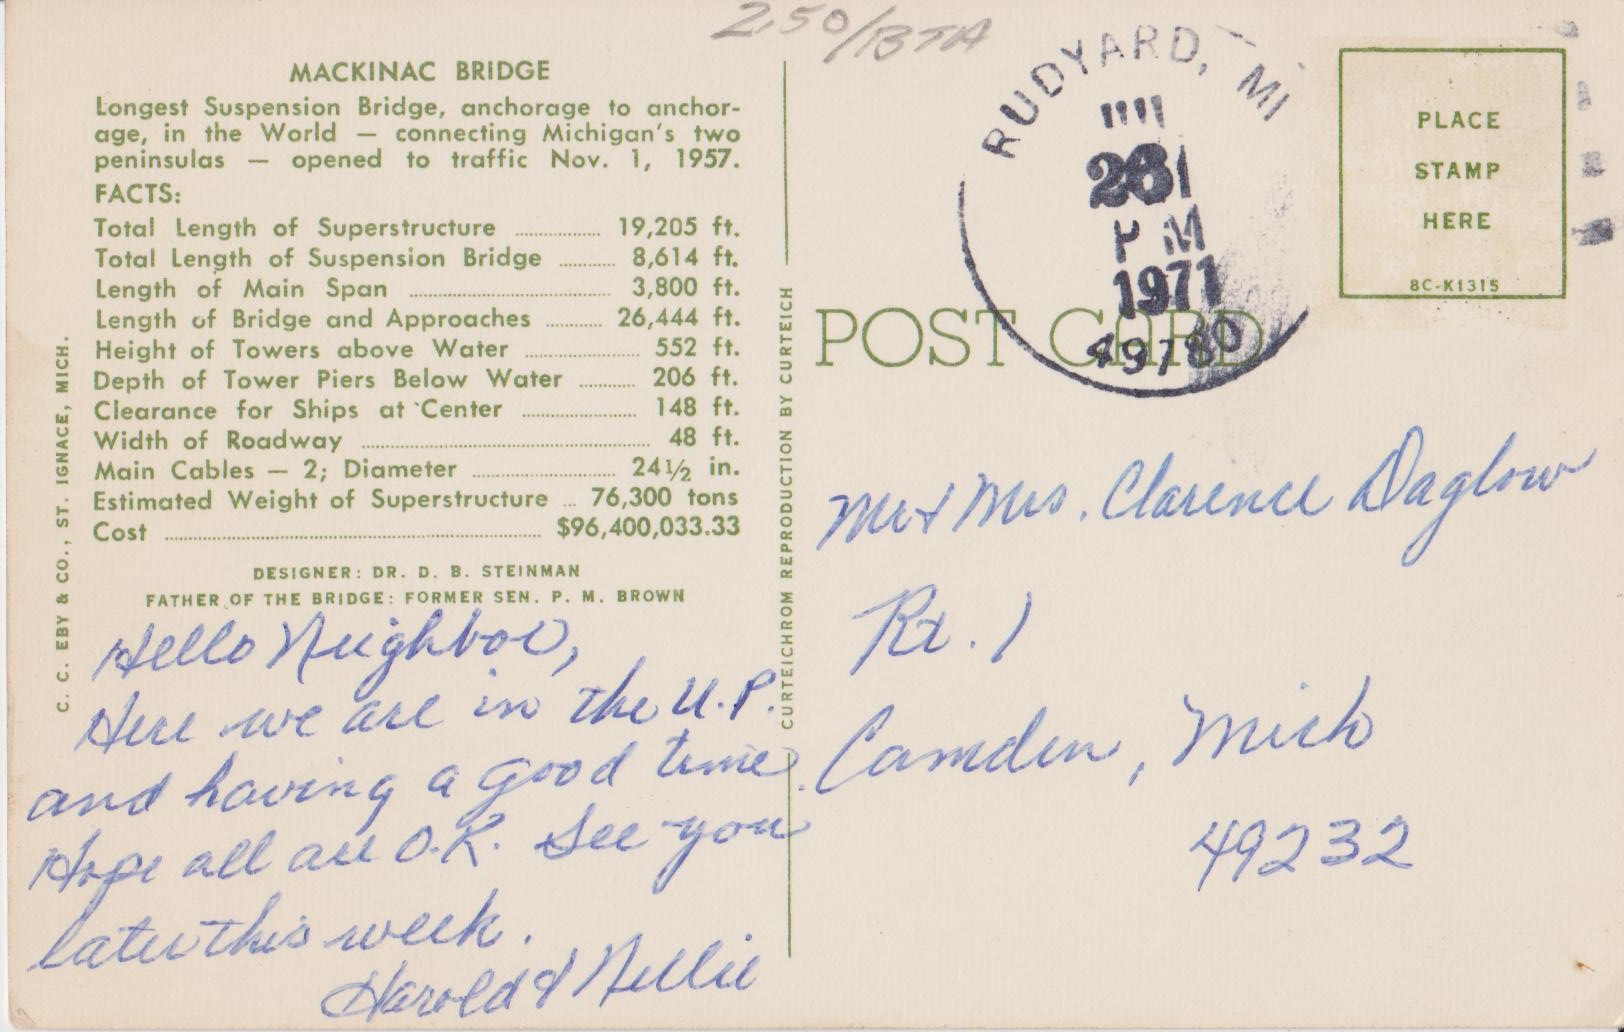 2.50/BTA
MACKINAC BRIDGE
Longest Suspension Bridge, anchorage to anchor-
age, in the World — connecting Michigan's two
peninsulas — opened to traffic Nov. 1, 1957.
FACTS:
Total Length of Superstructure ........ 19,205 ft.
Total Length of Suspension Bridge ........ 8,614 ft.
Length of Main Span ........ 3,800 ft.
Length of Bridge and Approaches ........ 26,444 ft.
Height of Towers above Water ........ 552 ft.
Depth of Tower Piers Below Water ........ 206 ft.
Clearance for Ships at Center ........ 148 ft.
Width of Roadway ........ 48 ft.
Main Cables — 2; Diameter ........ 24½ in.
Estimated Weight of Superstructure ... 76,300 tons
Cost ........ $96,400,033.33
DESIGNER: DR. D. B. STEINMAN
FATHER OF THE BRIDGE: FORMER SEN. P. M. BROWN
C. C. EBY & CO., ST. IGNACE, MICH.
Hello Neighbor,
Here we are in the U.P.
and having a good time.
Hope all are O.K. See you
later this week.
Harold & Nellie
CURTEICHROM REPRODUCTION BY CURTEICH
RUDYARD, MI
PM
1971
49780
PLACE
STAMP
HERE
8C-K1315
POST CARD
Mr & Mrs. Clarence Daglow
Rt. 1
Camden, Mich
49232